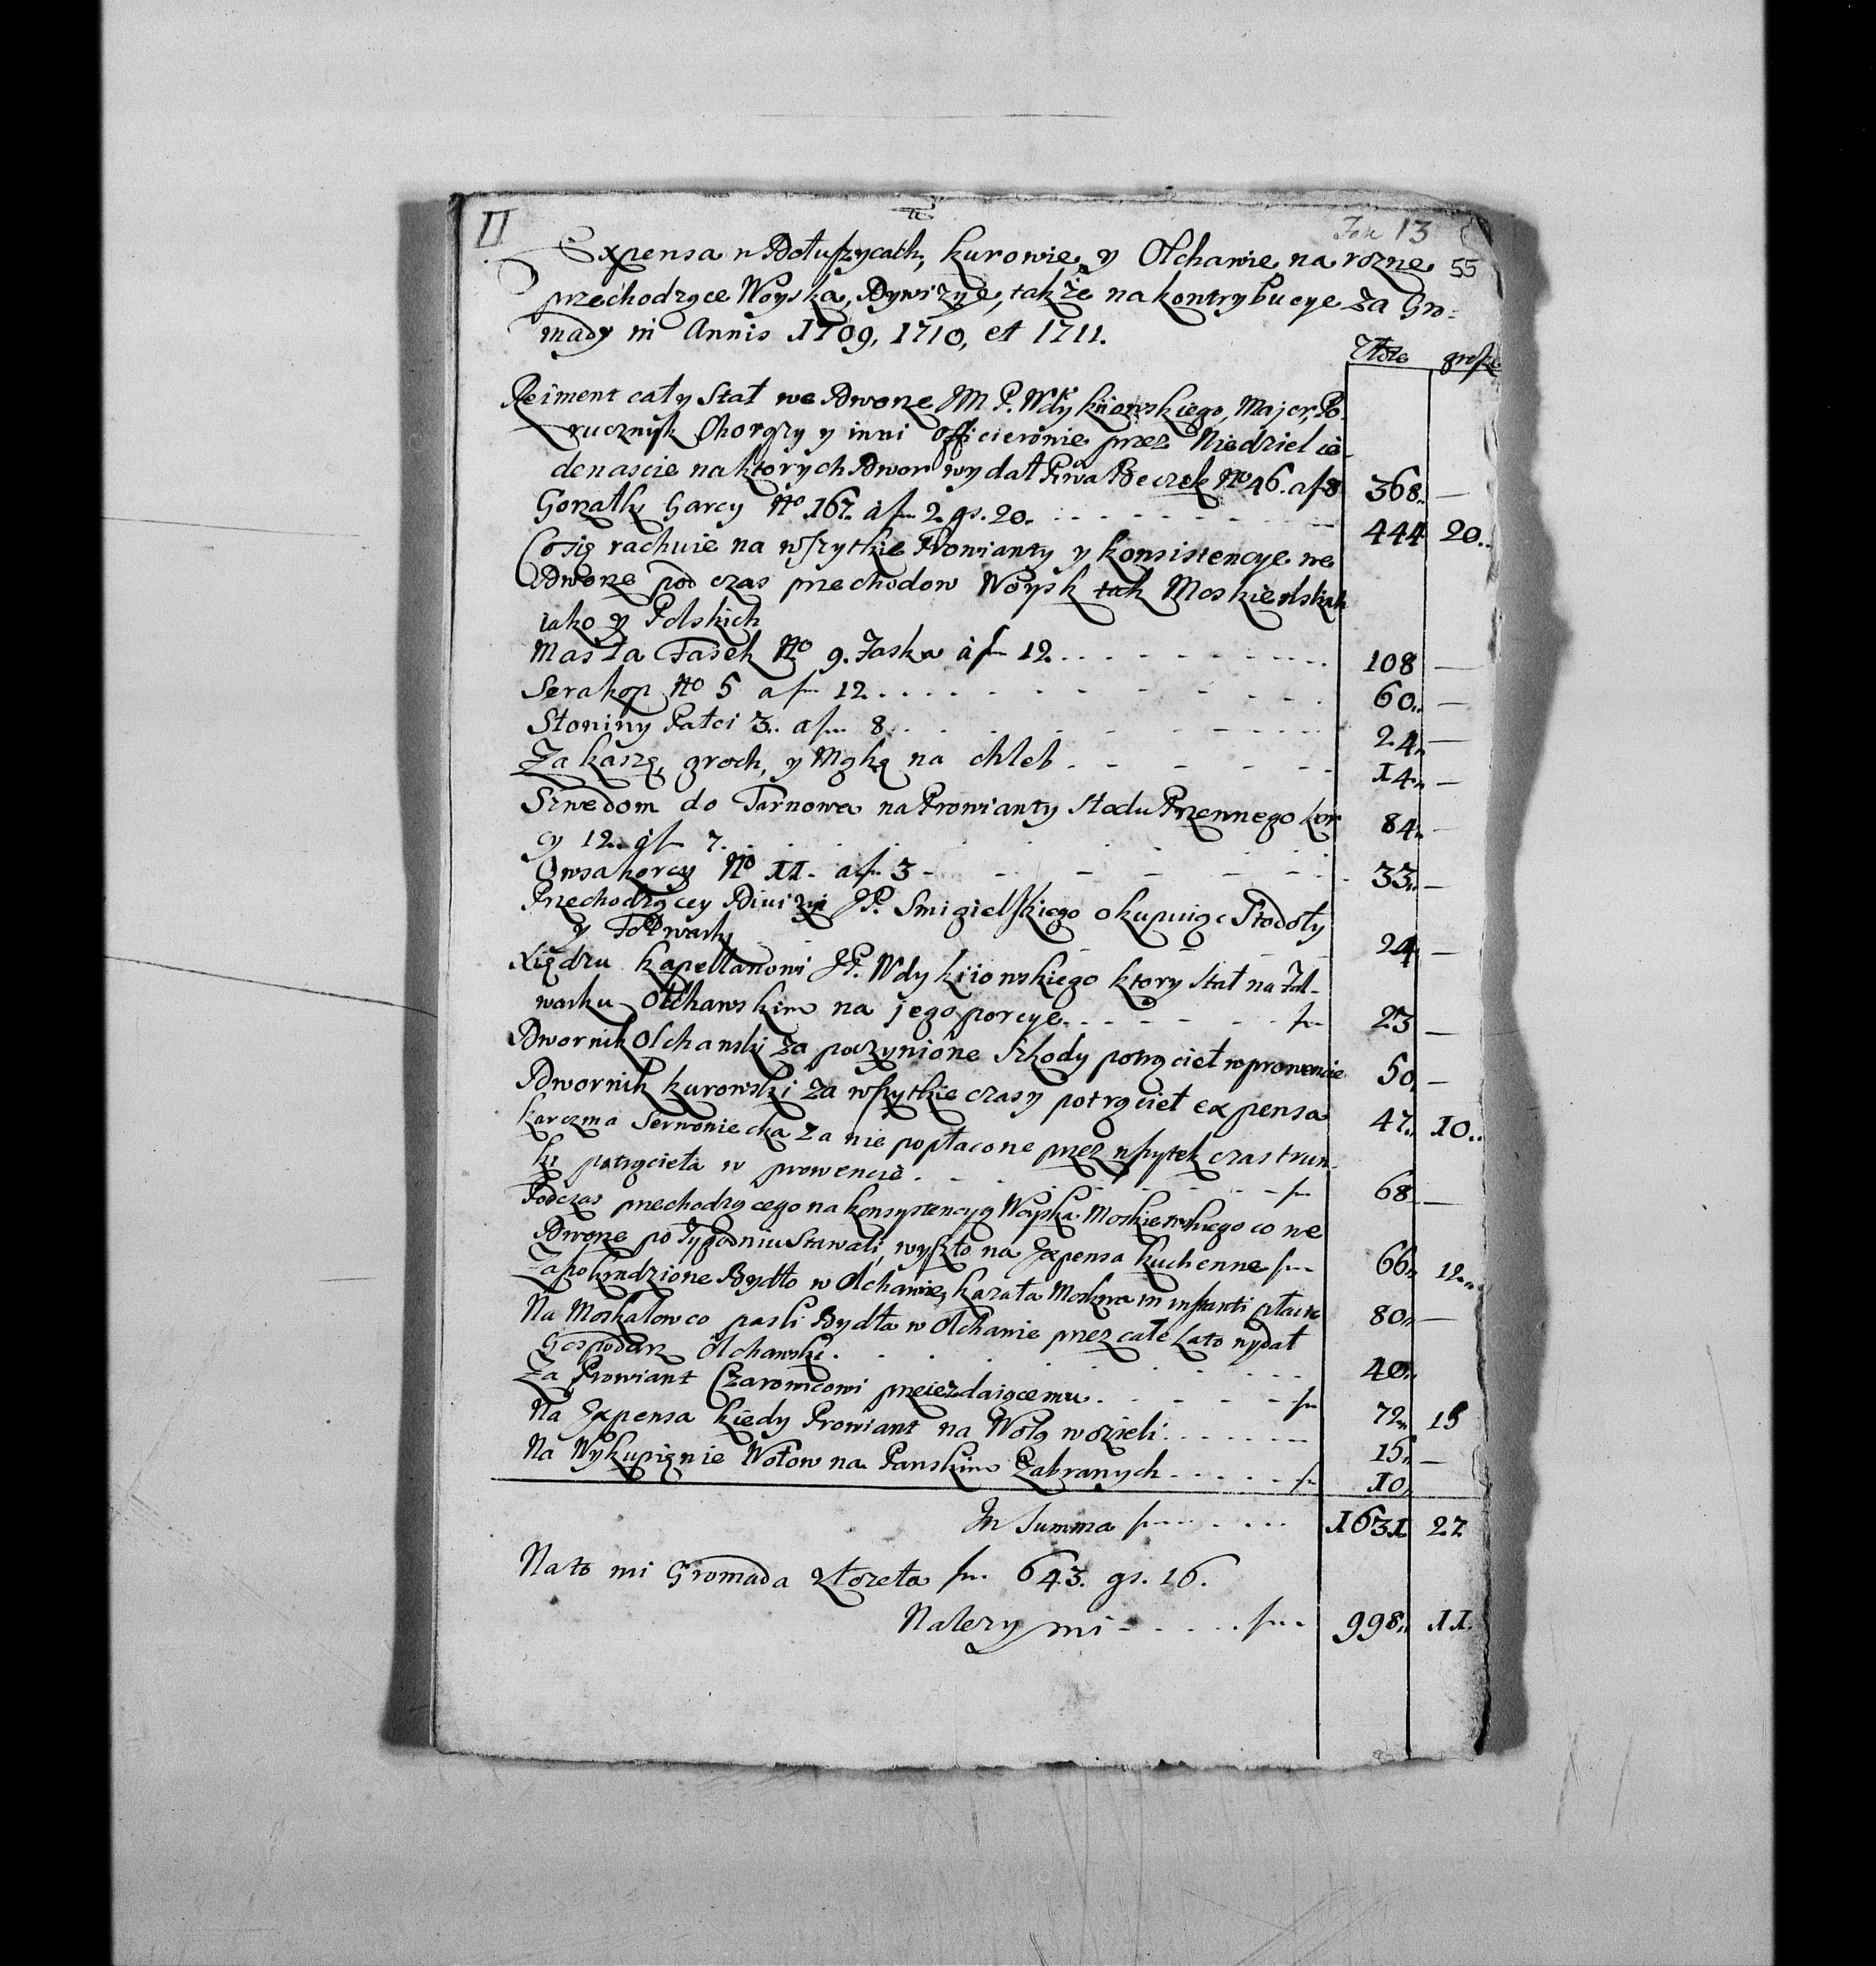 II
Fasc 13
55
Expensa w Dołuszycach, Kurowie, y Olchawie na rozne
przechodzące Woyska, Dywizye, także na kontrybucye za Gro-
mady in Annis 1709, 1710, et 1711.
Złote grosze
Reiment cały Stał we Dworze JM P. Wdy kiiowskiego, Major, Po-
rucznik Chorązy y inni officierowie przez Niedziel ie-
denascie na ktorych Dwor wydał Piwa Beczek No 46. a f 8 368 —
Gorzałky Garcy No 167. a f 2. gs. 20. 444 20
Co się rachuie na wszytkie Prowianty y konsistencye we
Dworze pod czas przechodow Woysk tak Moskiewskich
iako y Polskich
Masła Fasek No 9. Faska a f 12. 108 —
Serakop No 5 a f 12. 60 —
Słoniny Połci 3. a f 8. 24 —
Za kaszę, groch, y Mąkę na chleb 14 —
Szwedom do Tarnowa na Prowianty Słodu Pszennego kor-
cy 12. a f 7. 84 —
Owsa korcy No 11. a f 3 33 —
Przechodzącey Diwizyi JP. Smigielskiego okupuiąc Stodoły
y Folwarky 24 —
Xiędzu Kapellanowi JP. Wdy kiiowskiego ktory Stał na Fol-
warku Olchawskim na jego porcye f 23 —
Dwornik Olchawski za poczynione Szkody potrącieł w prowencie 50 —
Dwornik kurowski za wszytkie czasy potrącieł expensa 47 10
Karczma Serwoniecka za nie popłacone przez wszytek czas trun-
ki potrącieła w prowencie f 68 —
Podczas przechodzącego na konsystencyą Woyska Moskiewskiego co we
Dworze po Tygodniu Stawali, wyszło na Expensa kuchenne f 66 12
Za pokradzione Bydło w Olchawie, kazała Moskwa in instanti płacic 80 —
Na Moskalow co pasli Bydła w Olchawie przez całe Lato wydał
Gospodarz Olchawski 40
Za Prowiant Czarowicowi przeiezdaiącemu f 72 15
Na Expensa kiedy Prowiant na Wolą wozieli 15 —
Na Wykupięnie Wołow na Panskim Zabranych f 10
In Summa f 1631 27
Na to mi Gromada złozeła f 643. gs. 16.
Nalezy mi f 998 11.